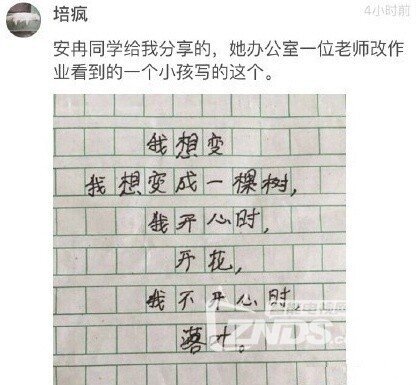 培疯
4小时前
安冉同学给我分享的，她办公室一位老师改作
业看到的一个小孩写的这个。
我想变
我想变成一棵树，
我开心时，
开花，
我不开心时
落叶。
ZNDS.COM